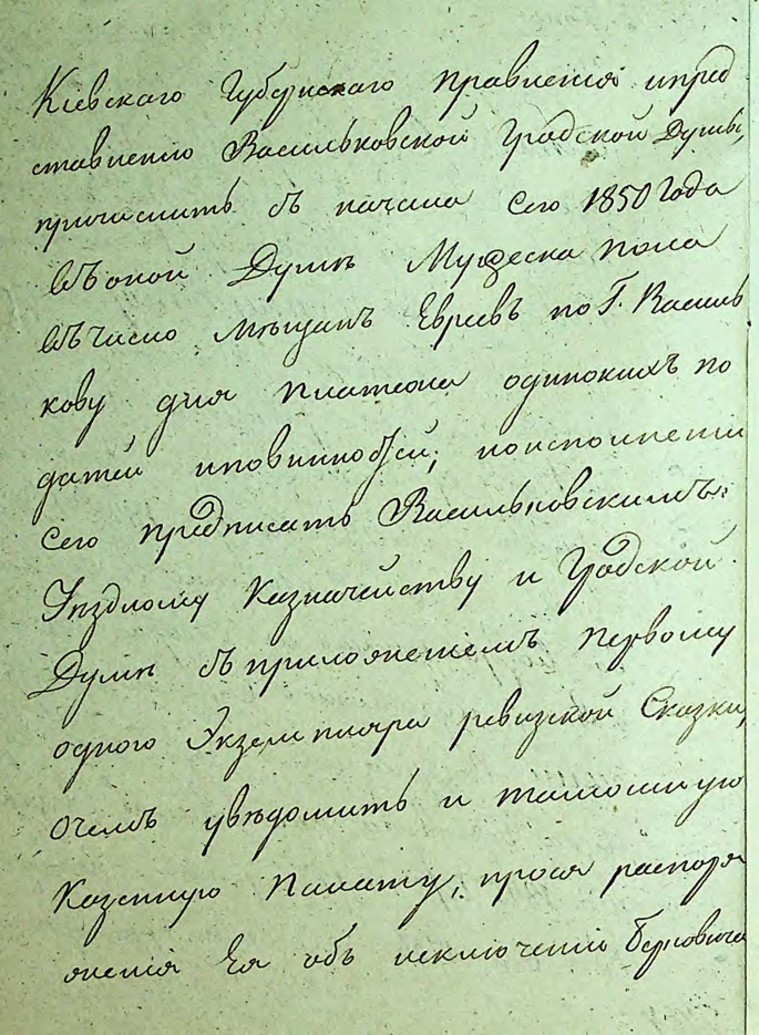 Кіевскаго Губернскаго Правленія ипред
ставленію Васильковской Градской Думы,
причислить съ начала сего 1850 Года
въ оной Думѣ Мужеска пола
въ число мѣщанъ Евреевъ по Г. Василь
кову для платежа одинокихъ по
датей иповинностей; поисполненіи
сего предписать Васильковскимъ:
Уѣздному Казначейству и Градской
Думѣ съ приложеніемъ первому
одного Экземпляра ревизской Сказки,
очемъ увѣдомить и тамошнюю
Казенную Палату, прося распоря
женія Ея объ исключеніи Берковича